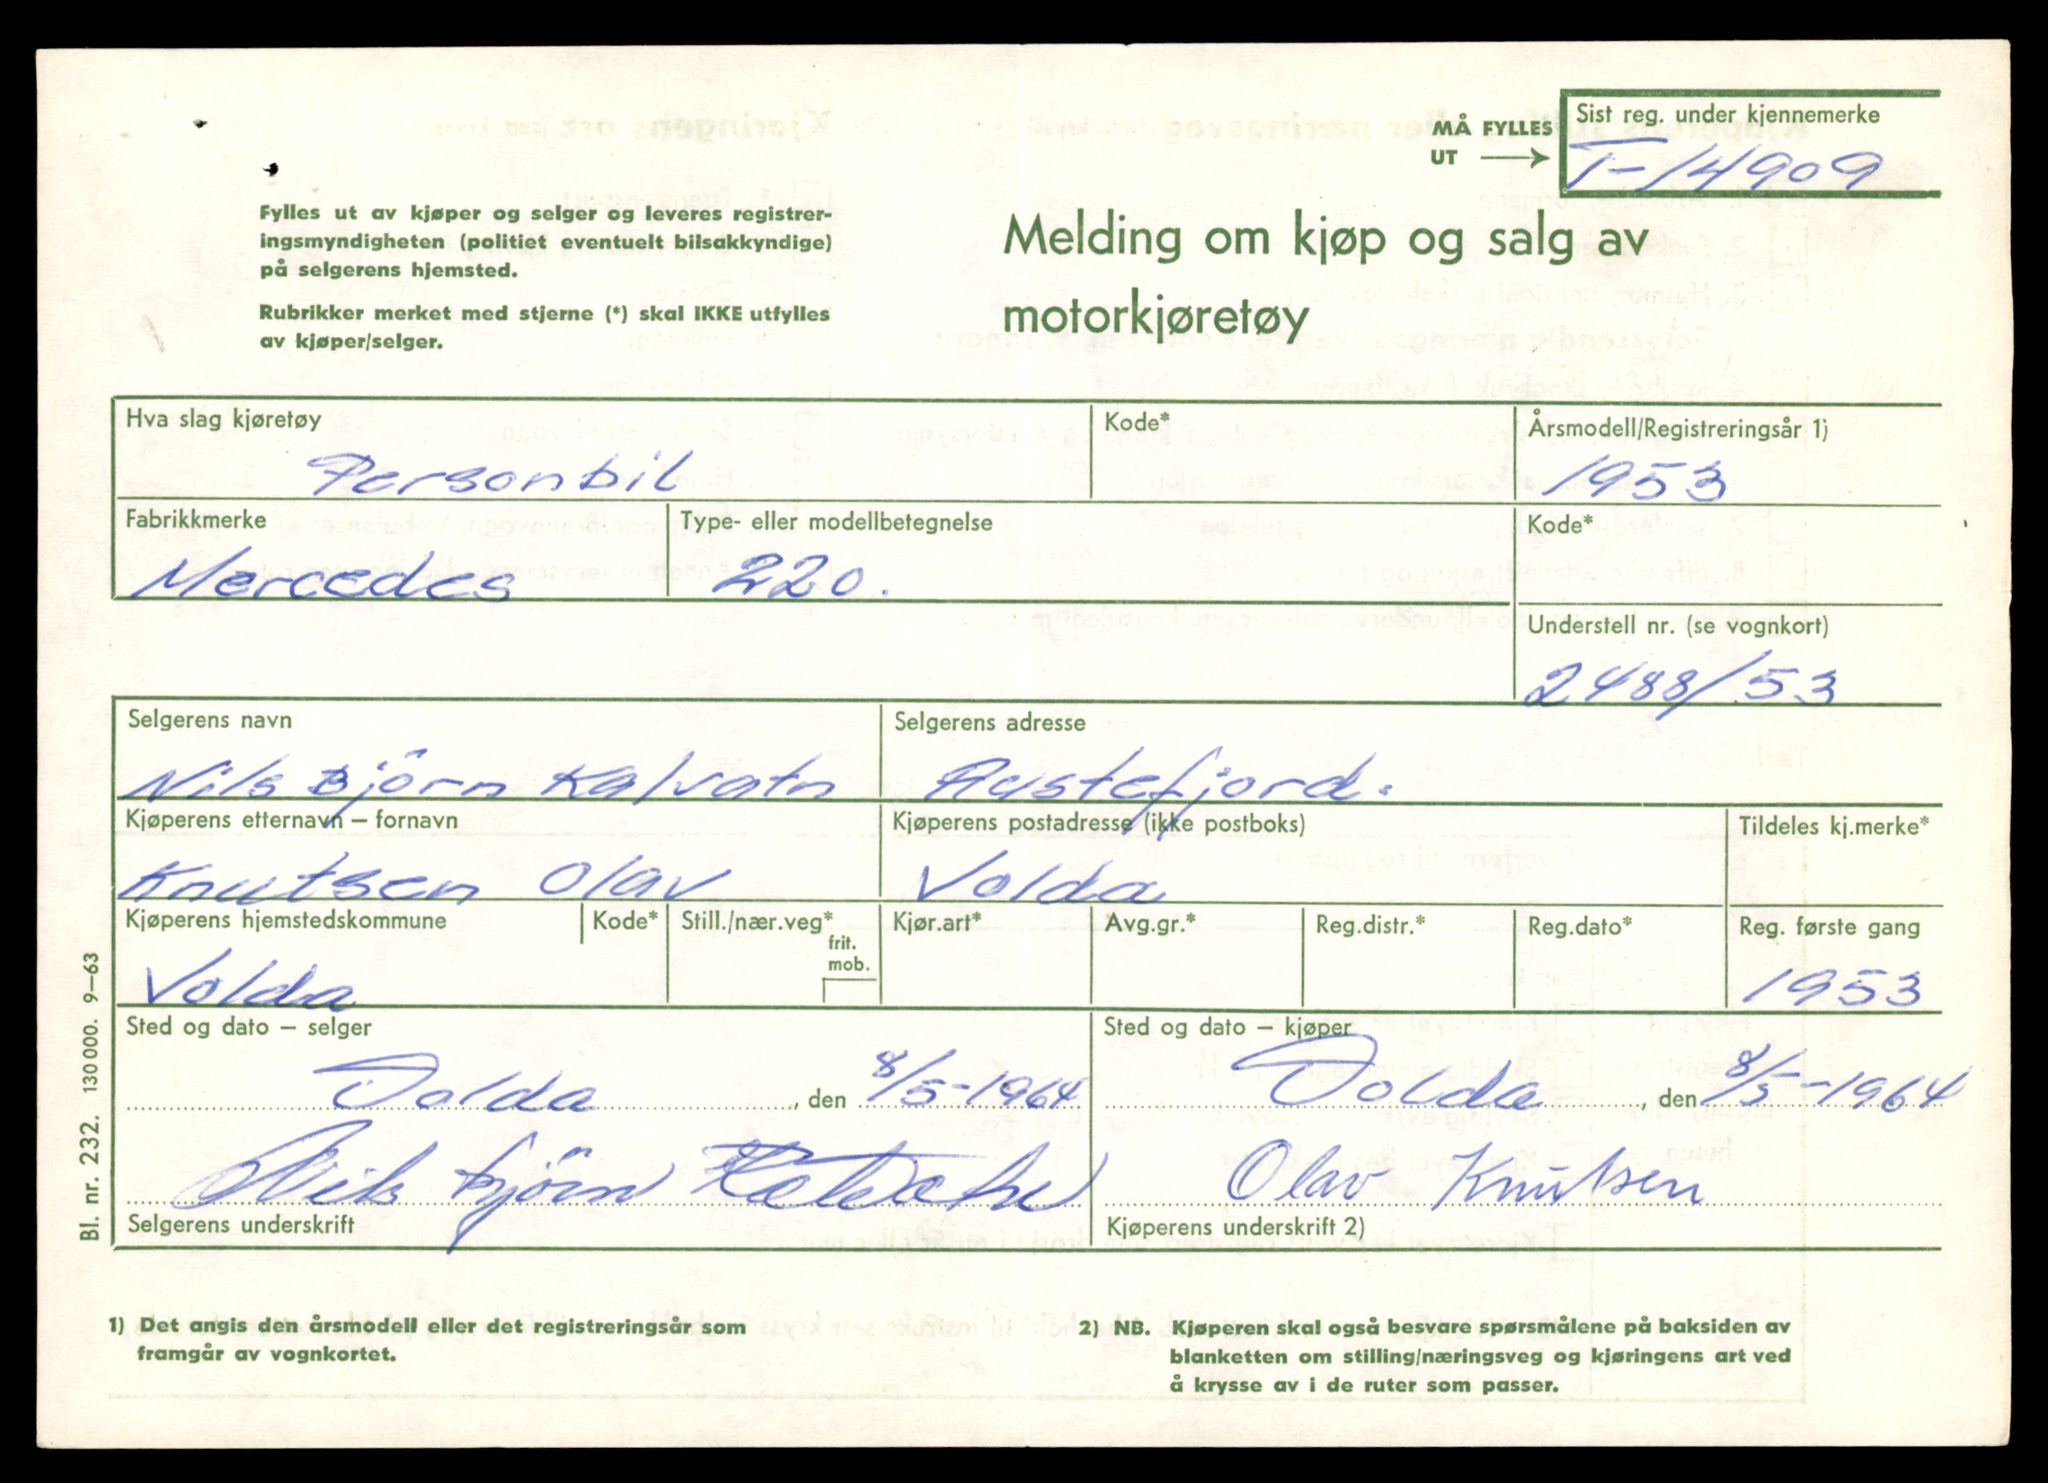 MÅ FYLLES UT
Sist reg. under kjennemerke
T-14909
Fylles ut av kjøper og selger og leveres registrer-
ingsmyndigheten (politiet eventuelt bilsakkyndige)
på selgerens hjemsted.
Rubrikker merket med stjerne (*) skal IKKE utfylles
av kjøper/selger.
Melding om kjøp og salg av
motorkjøretøy
Hva slag kjøretøy
Kode*
Årsmodell/Registreringsår 1)
Personbil
1953
Fabrikkmerke
Type- eller modellbetegnelse
Kode*
Mercedes
220.
Understell nr. (se vognkort)
2488/53
Selgerens navn
Selgerens adresse
Nils Bjørn Kalvatn
Austefjord.
Kjøperens etternavn – fornavn
Kjøperens postadresse (ikke postboks)
Tildeles kj.merke*
Knutsen Olav
Volda
Kjøperens hjemstedskommune
Kode*
Still./nær.veg*
frit.
mob.
Kjør.art*
Avg.gr.*
Reg.distr.*
Reg.dato*
Reg. første gang
Volda
1953
Sted og dato – selger
Sted og dato – kjøper
Volda, den 8/5-1964
Volda, den 8/5-1964
Nils Bjørn Kalvatn
Olav Knutsen
Selgerens underskrift
Kjøperens underskrift 2)
Bl. nr. 232. 130 000. 9–63
1) Det angis den årsmodell eller det registreringsår som
framgår av vognkortet.
2) NB. Kjøperen skal også besvare spørsmålene på baksiden av
blanketten om stilling/næringsveg og kjøringens art ved
å krysse av i de ruter som passer.